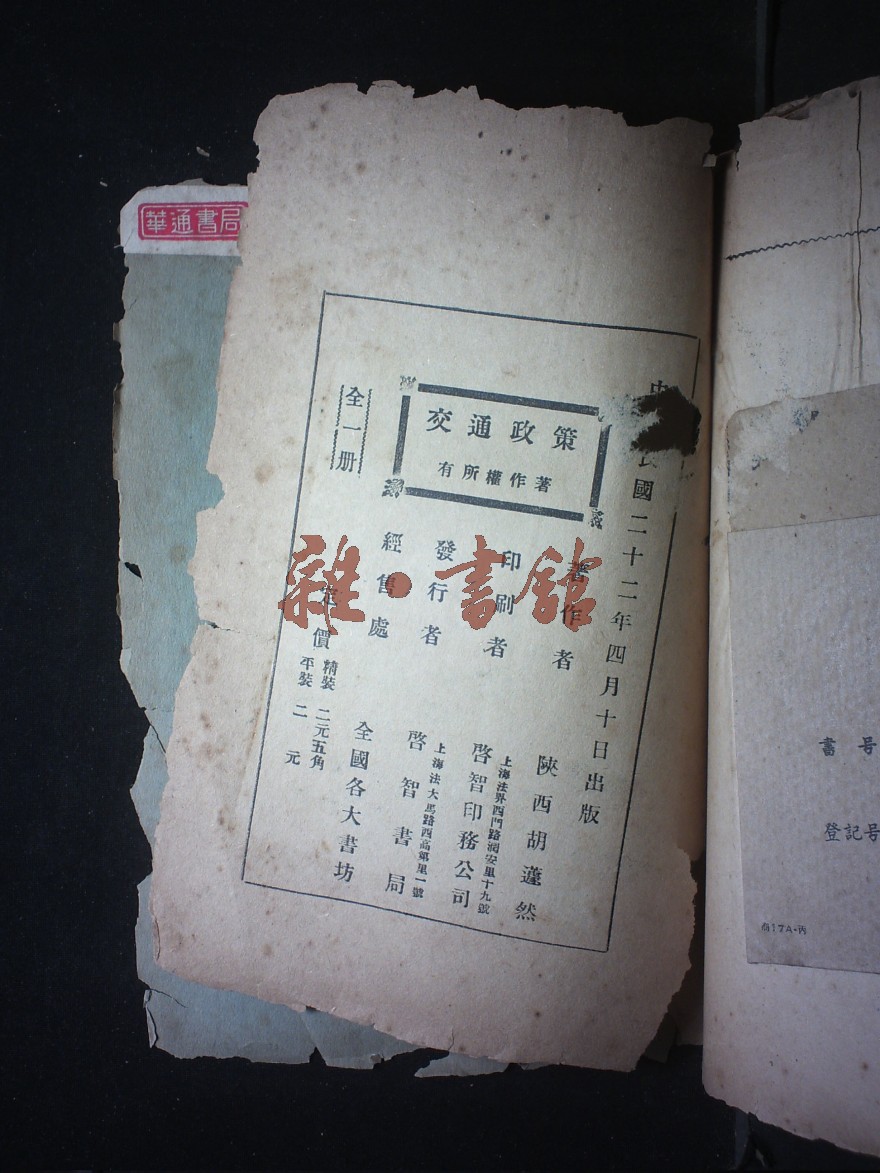 華通書局
國二十二年四月十日出版
交通政策
有所權作著
全一册
著作者 陝西胡蘧然
印刷者 啓智印務公司
上海法界西門路潤安里十九號
發行者 啓智書局
上海法大馬路西高第里一號
經售處 全國各大書坊
定價 精裝 二元五角
平裝 二元
雜·書館
書号
登記号
商17A-丙